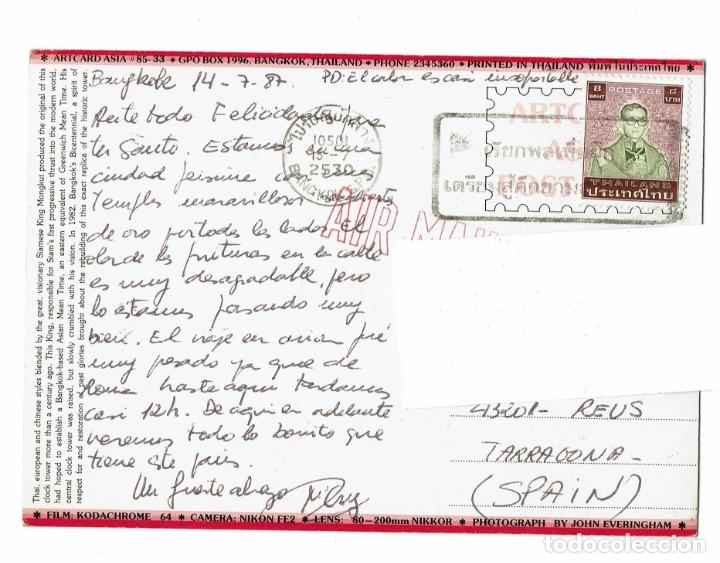 * ARTCARD ASIA #85-33 * GPO BOX 1996, BANGKOK, THAILAND * PHONE 2345360 * PRINTED IN THAILAND พิมพ์ในประเทศไทย *
Bangkok 14-7-87 PD: El calor es casi insoportable
Ante todo Felicidades
tu Santo. Estamos en una
ciudad con unos
Temples maravillosos
de oro por todos los lados. El
olor de las frituras en la calle
es muy desagradable, pero
lo estamos pasando muy
bien. El viaje en avion fué
muy pesado ya que de
Roma hasta aqui tardamos
casi 12h. De aqui en adelante
veremos todo lo bonito que
tiene este pais.
Un fuerte abrazo
Thai, european and chinese styles blended by the great, visionary Siamese King Mongkut produced the original of this
clock tower more than a century ago. This King, responsible for Siam's first progressive thrust into the modern world,
had hoped to establish a Bangkok-based Asian Mean Time, an eastern equivalent of Greenwich Mean Time. His
central clock tower was raised, but slowly crumbled with his vision. In 1982, Bangkok's Bicentennial, a spirit of
respect for and restoration of past glories brought about the rebuilding of this exact replica of the historic tower.
10501
2530
BANGKOK
AIR MAIL
ARTC
POST
8 BAHT POSTAGE ๘ บาท
THAILAND
ประเทศไทย
43201- REUS
TARRAGONA-
(SPAIN)
* FILM: KODACHROME 64 * CAMERA: NIKON FE2 * LENS: 80-200mm NIKKOR * PHOTOGRAPH BY JOHN EVERINGHAM *
todocoleccion
todocoleccion.net